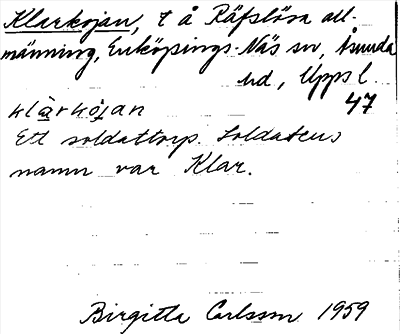 Klarkojan, t å Räfslösa all-
männing, Enköpings-Näs sn, Åsunda
hd, Upps l.
klàrkòjan 47
Ett soldattorp. Soldatens
namn var Klar.
Birgitta Carlsson 1959